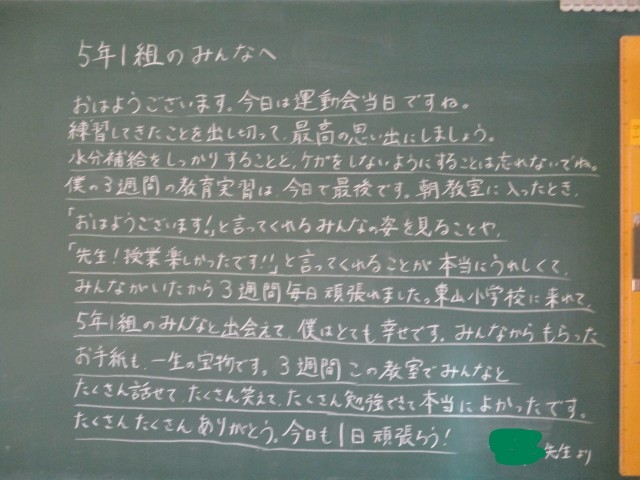 5年1組のみんなへ
おはようございます。今日は運動会当日ですね。
練習してきたことを出し切って、最高の思い出にしましょう。
水分補給をしっかりすることと、ケガをしないようにすることは忘れないでね。
僕の3週間の教育実習は、今日で最後です。朝教室に入ったとき、
「おはようございます!」と言ってくれるみんなの姿を見ることや、
「先生!授業楽しかったです!!」と言ってくれることが本当にうれしくて、
みんながいたから3週間毎日頑張れました。東山小学校に来れて、
5年1組のみんなと出会えて、僕はとても幸せです。みんなからもらった
お手紙も、一生の宝物です。3週間この教室でみんなと
たくさん話せて、たくさん笑えて、たくさん勉強できて本当によかったです。
たくさんたくさんありがとう。今日も1日頑張ろう!
先生より